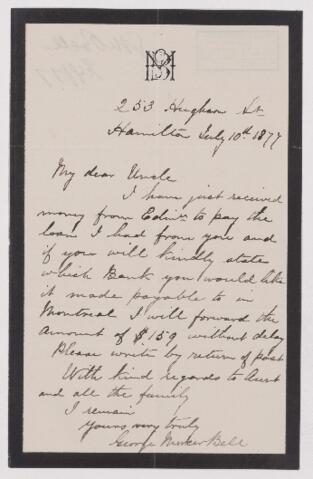 253 Hughson St.
Hamilton July 10th 1877
My dear Uncle
I have just received
money from Edinr. to pay the
loan I had from you and
if you will kindly state
which Bank you would like
it made payable to in
Montreal I will forward the
amount of $159 without delay
Please write by return of post
With kind regards to Aunt
and all the family
I remain
yours very truly
George Bell